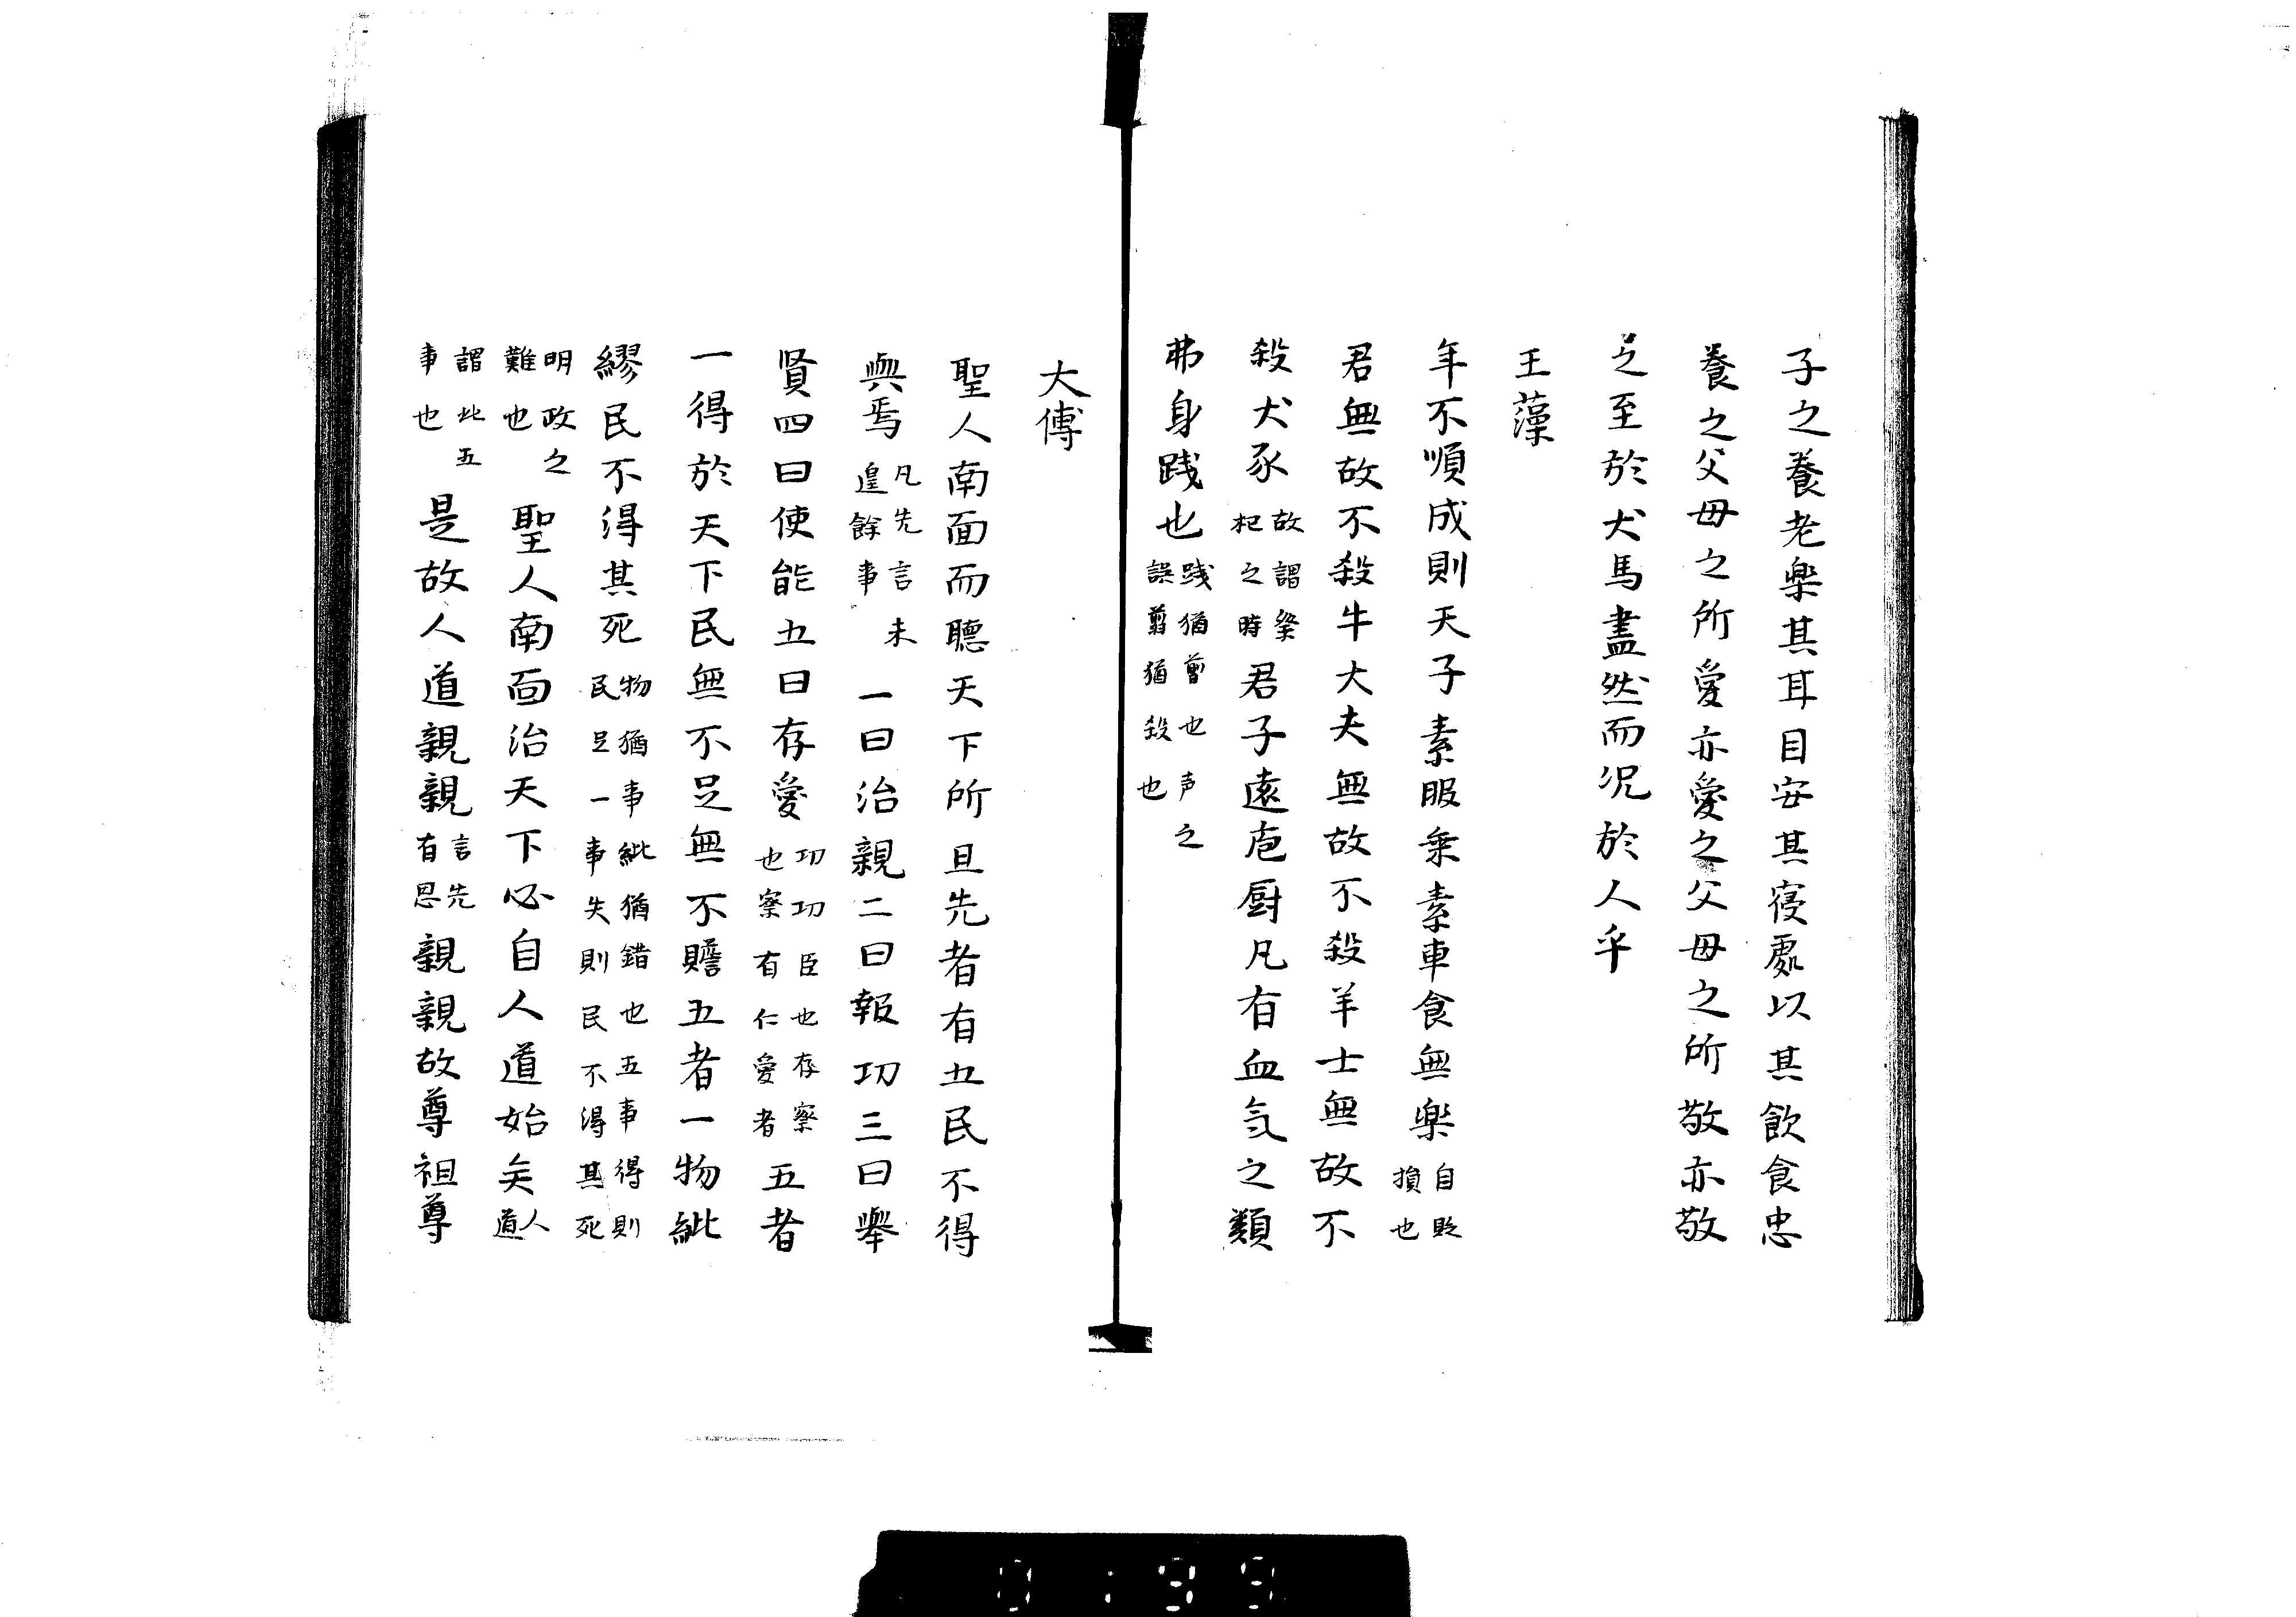 子之養老樂其耳目安其寑處以其飲食忠
養之父母之所愛亦愛之父母之所敬亦敬
之至於犬馬盡然而况於人乎
王藻
年不順成則天子素服乘素車食無樂自貶損也
君無故不殺牛大夫無故不殺羊士無故不
殺犬豕故謂祭祀之時君子遠庖厨凡有血氣之類
弗身践也践猶翦也声之誤翦猶殺也
大傅
聖人南面而聽天下所且先者有五民不得
與焉凡先言未遑餘事一曰治親二曰報功三曰舉
賢四曰使能五曰存愛功功臣也存察也察有仁愛者五者
一得於天下民無不足無不贍五者一物紕
繆民不得其死物猶事紕猶錯也五事得則民足一事失則民不得其死
明政之難也聖人南面治天下必自人道始矣人道
謂此五事也是故人道親親言先有恩親親故尊祖尊
0199